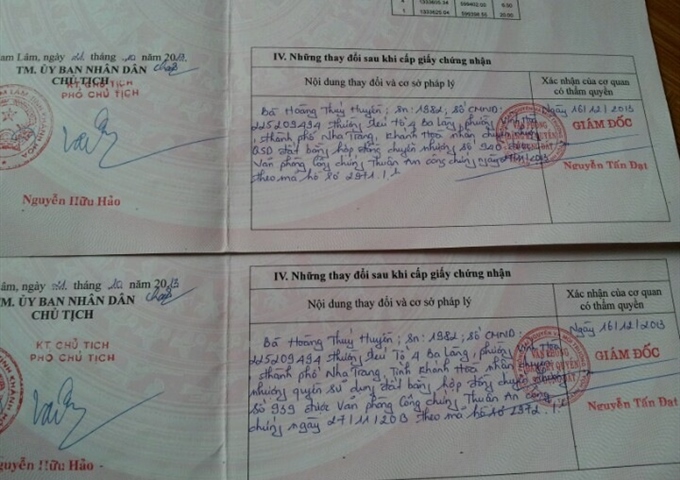 4 1333635.34 599402.00 6.00
1 1333625.04 599399.55 20.00
am Lâm, ngày tháng 10 năm 2013
TM. ỦY BAN NHÂN DÂN
CHỦ TỊCH
KT CHỦ TỊCH
PHÓ CHỦ TỊCH
Nguyễn Hữu Hảo
IV. Những thay đổi sau khi cấp giấy chứng nhận
Nội dung thay đổi và cơ sở pháp lý
Xác nhận của cơ quan có thẩm quyền
Bà Hoàng Thuý Huyền; Sn: 1982, số CMND:
225209494 thường trú Tổ 4 Ba Làng, phường
thành phố Nha Trang, Khánh Hoà nhận chuyển
QSD đất bằng hợp đồng chuyển nhượng số 940
Văn phòng Công chứng Thuận An công chứng ngày
theo mã hồ số 2971.
Ngày 16/12/2013
GIÁM ĐỐC
Nguyễn Tấn Đạt
Lâm, ngày tháng 10 năm 2013
TM. ỦY BAN NHÂN DÂN
CHỦ TỊCH
KT CHỦ TỊCH
PHÓ CHỦ TỊCH
guyễn Hữu Hảo
IV. Những thay đổi sau khi cấp giấy chứng nhận
Nội dung thay đổi và cơ sở pháp lý
Xác nhận của cơ quan có thẩm quyền
Bà Hoàng Thuý Huyền; Sn: 1982; Số CMND:
225209494 thường trú Tổ 4 Ba Làng, phường Vĩnh Hoà
thành phố Nha Trang, Tỉnh Khánh Hoà nhận chuyển
nhượng quyền sử dụng đất bằng hợp đồng chuyển nhượng
số 939 được Văn phòng Công chứng Thuận An công
chứng ngày 27/11/2013 theo mã hồ số 2972.
Ngày 16/12/2013
GIÁM ĐỐC
Nguyễn Tấn Đạt